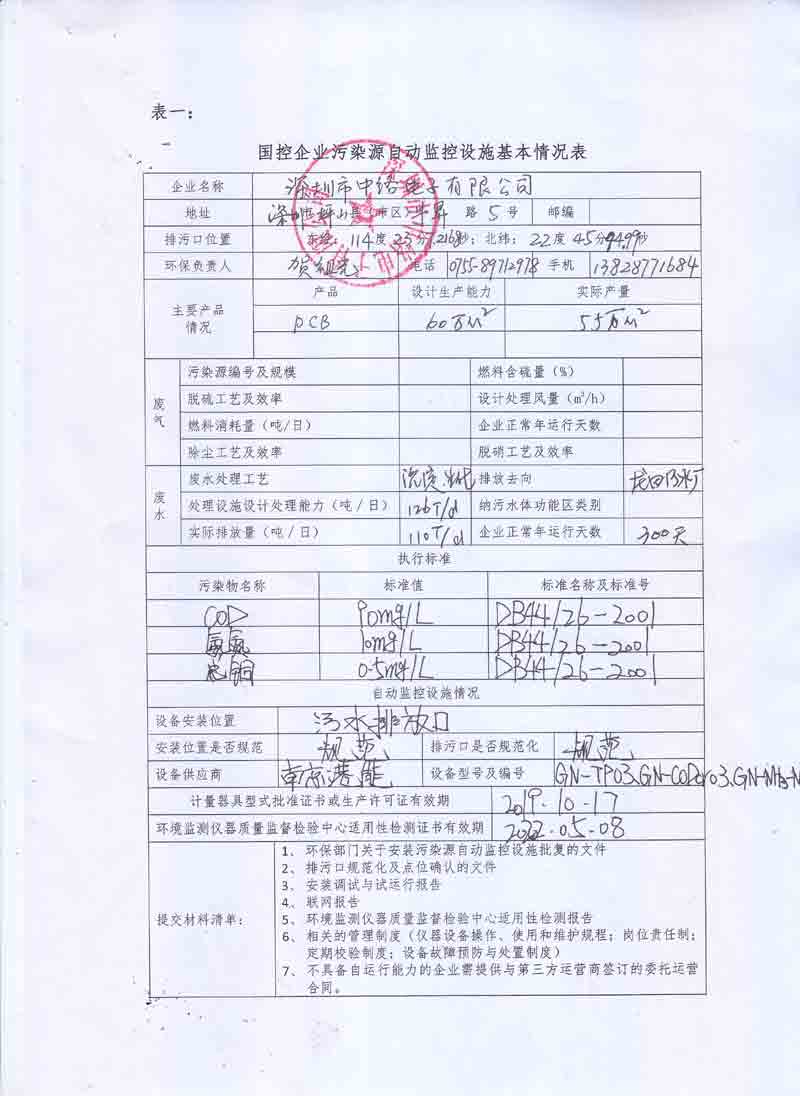 表一：
国控企业污染源自动监控设施基本情况表
企业名称 深圳市中络电子有限公司
地址 深圳市坪山县（市区） 路 5 号 邮编
排污口位置 东经：114度23分 秒；北纬：22度45分 秒
环保负责人 贺 电话 0755-89712978 手机 13828771684
主要产品情况 产品 设计生产能力 实际产量
PCB 60万M² 55万M²
废气
污染源编号及规模 燃料含硫量（%）
脱硫工艺及效率 设计处理风量（m³/h）
燃料消耗量（吨/日） 企业正常年运行天数
除尘工艺及效率 脱硝工艺及效率
废水
废水处理工艺 沉淀 生化 排放去向
处理设施设计处理能力（吨/日） 126T/d 纳污水体功能区类别
实际排放量（吨/日） 110T/d 企业正常年运行天数 300天
执行标准
污染物名称 标准值 标准名称及标准号
COD 90mg/L DB44/26-2001
氨氮 10mg/L DB44/26-2001
总铜 0.5mg/L DB44/26-2001
自动监控设施情况
设备安装位置 污水排放口
安装位置是否规范 规范 排污口是否规范化 规范
设备供应商 南京港能 设备型号及编号 GN-TP03.GN-CODcr03.GN-
计量器具型式批准证书或生产许可证有效期 2019.10-17
环境监测仪器质量监督检验中心适用性检测证书有效期 2022.05-08
提交材料清单：
1、 环保部门关于安装污染源自动监控设施批复的文件
2、 排污口规范化及点位确认的文件
3、 安装调试与试运行报告
4、 联网报告
5、 环境监测仪器质量监督检验中心适用性检测报告
6、 相关的管理制度（仪器设备操作、使用和维护规程；岗位责任制；
定期校验制度；设备故障预防与处置制度）
7、 不具备自运行能力的企业需提供与第三方运营商签订的委托运营
合同。